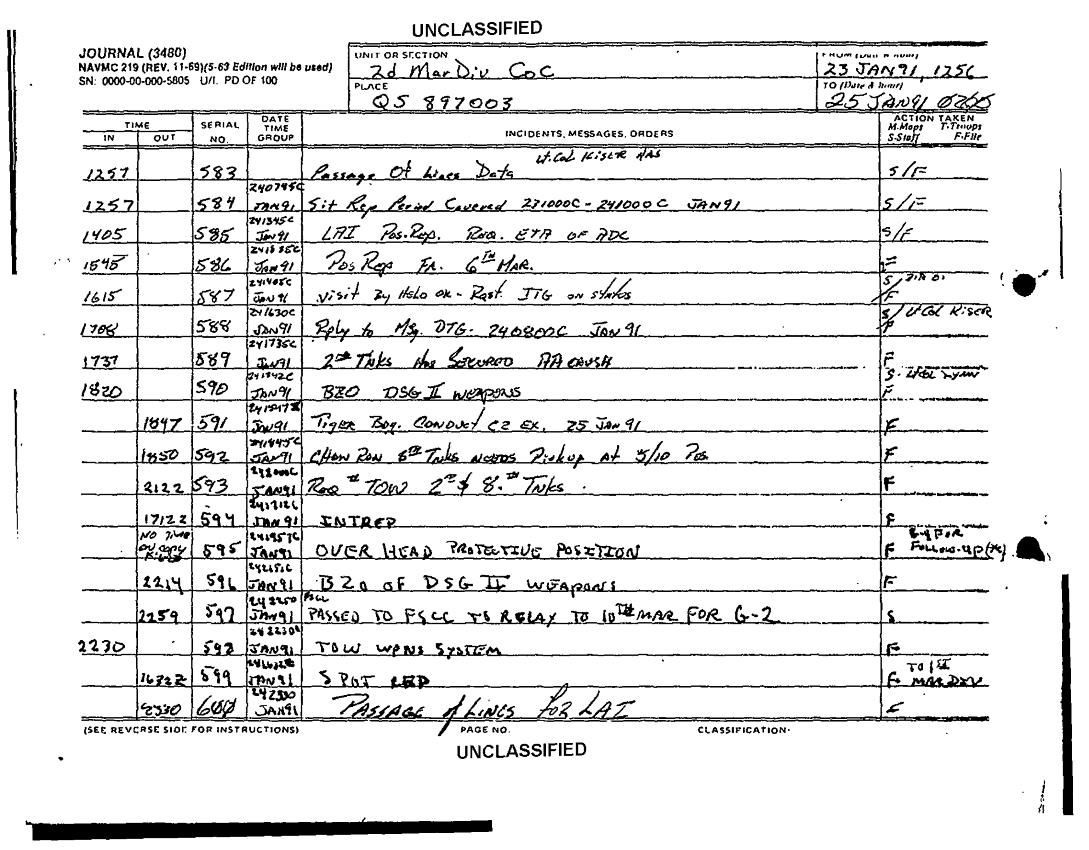 UNCLASSIFIED
JOURNAL (3480)
NAVMC 219 (REV. 11-69)(5-63 Edition will be used)
SN: 0000-00-000-5805 U/I. PD OF 100
UNIT OR SECTION
2d MarDiv CoC
PLACE
QS 897003
FROM (Date & hour)
23 JAN 91, 1256
TO (Date & hour)
25 JAN 91
TIME
IN OUT
SERIAL NO.
DATE TIME GROUP
INCIDENTS, MESSAGES, ORDERS
ACTION TAKEN
M-Maps T-Troops
S-Staff F-File
Lt.Col KISER HAS
1257 583 Passage Of Lines Data S/F
1257 584 240745C JAN 91 Sit Rep Period Covered 231000C-241000C JAN 91 S/F
1405 585 241345C Jan 91 LAI Pos.Rep. Req. ETA OF ADC S/F
1545 586 JAN 91 Pos Rep FR. 6TH MAR. F
1615 587 241405C JAN 91 Visit By Helo on status S/F
1708 588 241630C JAN 91 Reply to Msg. DTG- 240800C JAN 91 S/LtCol Kiser F
1737 589 241735C JAN 91 2nd TNKS Has SECURED AA F
1820 590 241842C JAN 91 BZO DSG II WEAPONS S- LtCol F
1847 591 JAN 91 Tiger Bdg. CONDUCT C2 EX. 25 JAN 91 F
1850 592 241845C JAN 91 CHOW RUN 8th Tnks needs Pickup At 5/10 Pos F
2122 593 JAN 91 Req TOW 2nd & 8th TNKS. F
1712Z 594 241712Z JAN 91 INTREP F
NO TIME
595 241957C JAN 91 OVER HEAD PROTECTIVE POSITION F FOR Follow-up
2214 596 JAN 91 BZO OF DSG II WEAPONS F
2259 597 242250 JAN 91 PASSED TO FSCC TO RELAY TO 10TH MAR FOR G-2 S
2230 598 242230C JAN 91 TOW WPNS SYSTEM F
1632Z 599 241632Z JAN 91 SPOT REP F- TO 1ST MARDIV
2330 600 242330 JAN 91 PASSAGE of LINES FOR LAI F
(SEE REVERSE SIDE FOR INSTRUCTIONS) PAGE NO. CLASSIFICATION
UNCLASSIFIED